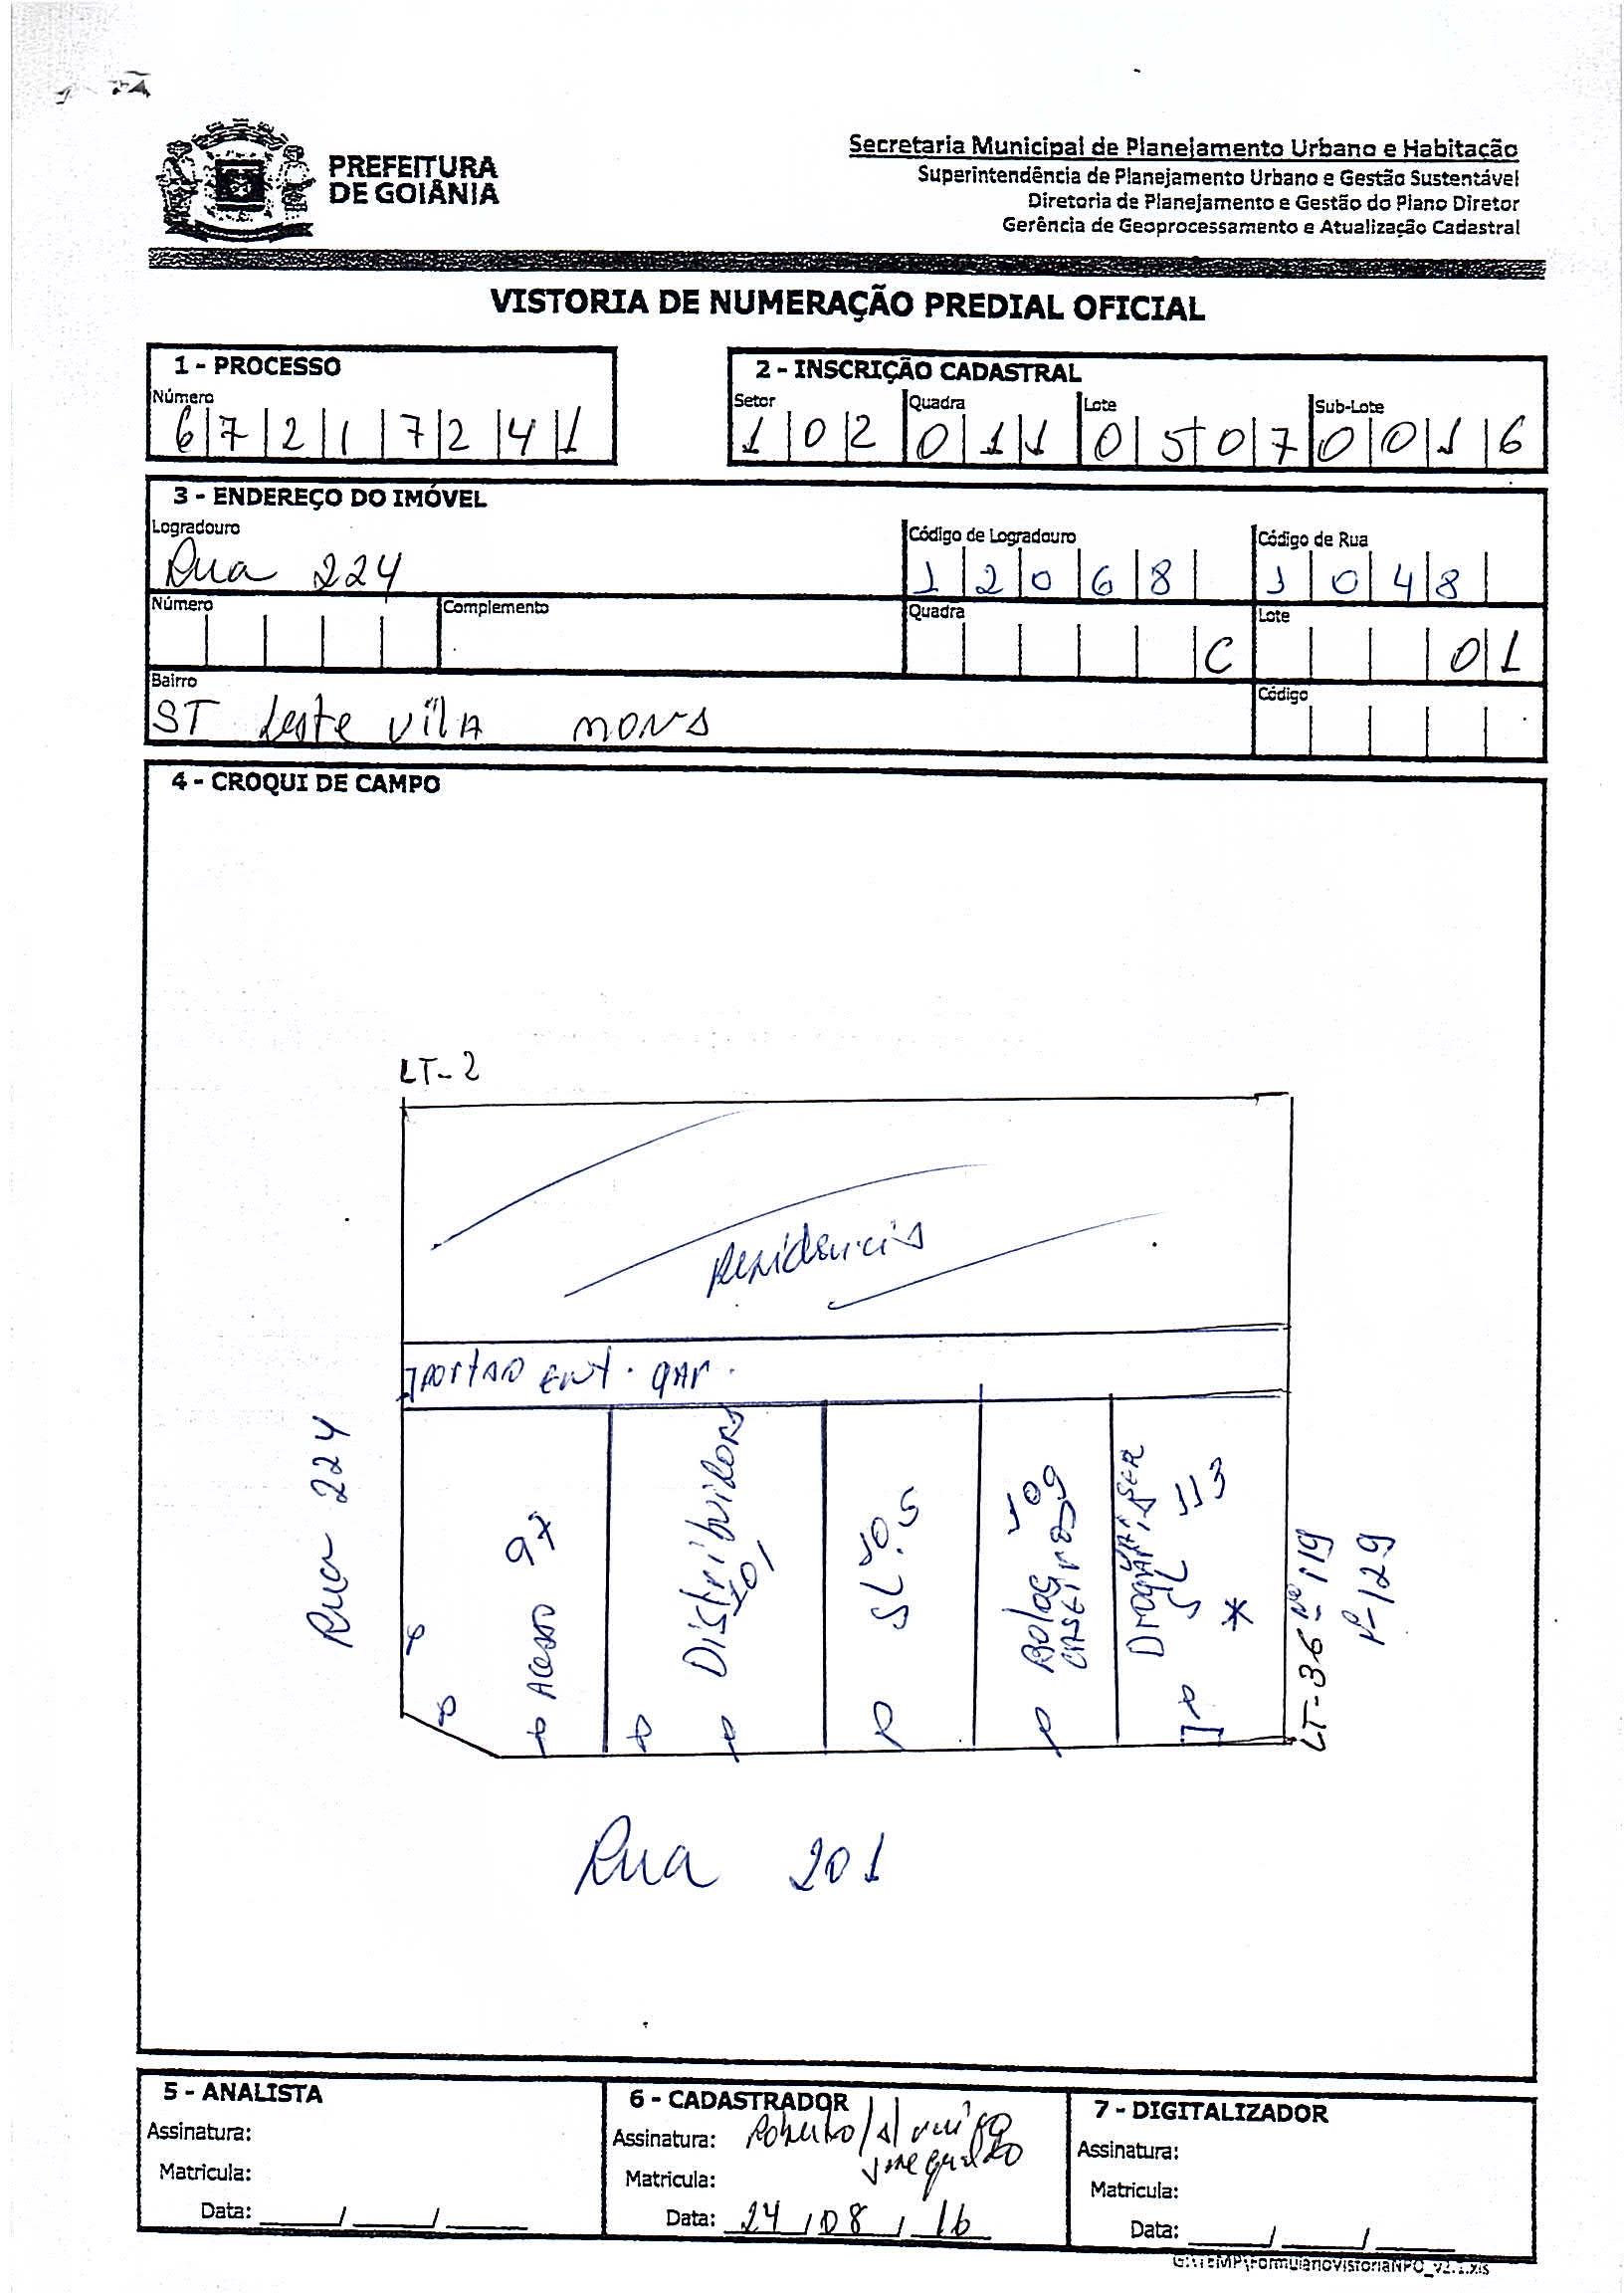 PREFEITURA
DE GOIÂNIA
Secretaria Municipal de Planejamento Urbano e Habitação
Superintendência de Planejamento Urbano e Gestão Sustentável
Diretoria de Planejamento e Gestão do Plano Diretor
Gerência de Geoprocessamento e Atualização Cadastral
VISTORIA DE NUMERAÇÃO PREDIAL OFICIAL
1 - PROCESSO
Número
6 7 2 1 7 2 4 1
2 - INSCRIÇÃO CADASTRAL
Setor Quadra Lote Sub-Lote
1 0 2 0 1 1 0 5 0 7 0 0 1 6
3 - ENDEREÇO DO IMÓVEL
Logradouro Código de Logradouro Código de Rua
Rua 224 1 2 0 6 8 1 0 4 8
Número Complemento Quadra Lote
C 0 1
Bairro Código
ST Leste Vila nova
4 - CROQUI DE CAMPO
LT-2
Residencia
PORTAO ENT. GAR.
Rua 224
Acesso 97
Distribuidora
101
SL 105
109
Bolos
CASEIROS
Drogaria
SL 113
*
LT-36 Nº 119
P-129
Rua 201
5 - ANALISTA
Assinatura:
Matricula:
Data: ____/____/____
6 - CADASTRADOR
Assinatura: Roberto/
Matricula:
Data: 24/08/16
7 - DIGITALIZADOR
Assinatura:
Matricula:
Data: ____/____/____
G:\TEMP\FormularioVistoriaNPO_v2.1.xls